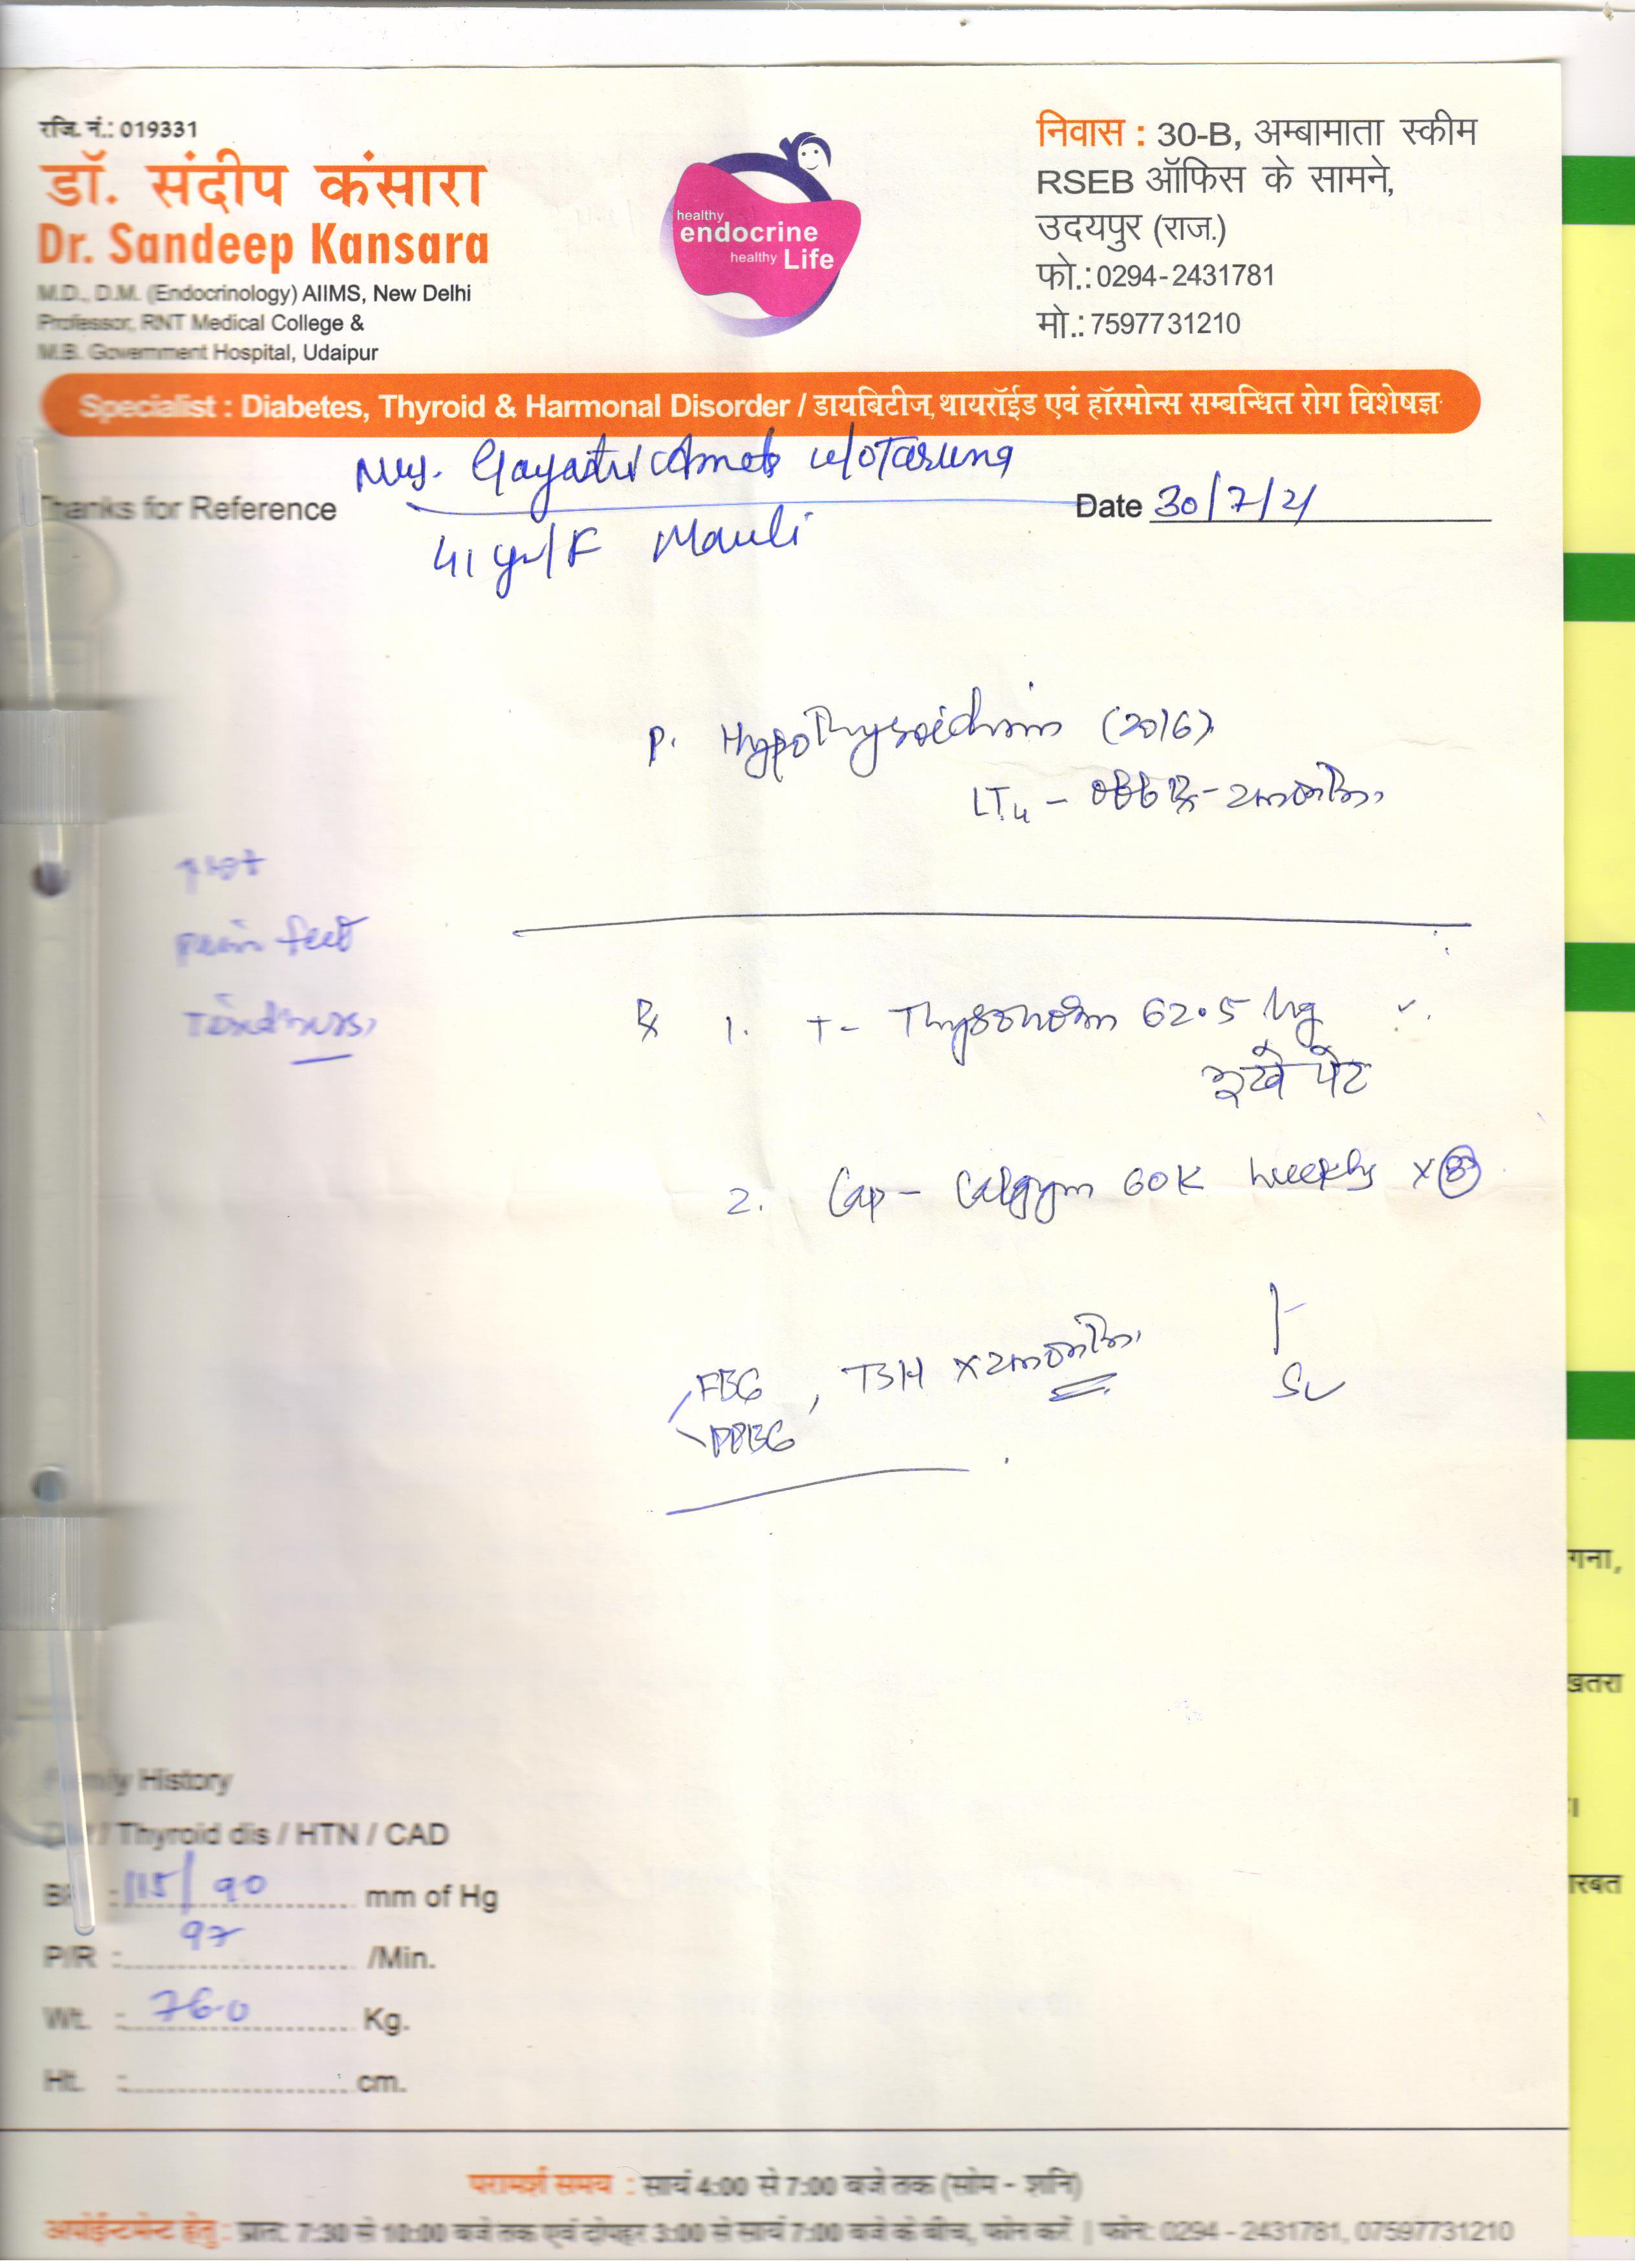 रजि. नं.: 019331
डॉ. संदीप कंसारा
Dr. Sandeep Kansara
M.D., D.M. (Endocrinology) AIIMS, New Delhi
Professor, RNT Medical College &
M.B. Government Hospital, Udaipur
healthy
endocrine
healthy Life
निवास : 30-B, अम्बामाता स्कीम
RSEB ऑफिस के सामने,
उदयपुर (राज.)
फो.: 0294-2431781
मो.: 7597731210
Specialist : Diabetes, Thyroid & Harmonal Disorder / डायबिटीज, थायरॉईड एवं हॉरमोन्स सम्बन्धित रोग विशेषज्ञ
Mrs. Gayatri w/o Taruna
Thanks for Reference
Date 30/7/21
41 yr/F Mauli
P. Hypothyroidism (2016)
LT4 - off Rx - 2 months
pain feet
Tiredness
Rx 1. T- Thyronorm 62.5 µg
भूखे पेट
2. Cap - 60K weekly x 8
FBG, TSH x 2 months
PPBG
Family History
/ Thyroid dis / HTN / CAD
BP : 115/90 mm of Hg
P/R : 97 /Min.
Wt. : 76.0 Kg.
Ht. : cm.
परामर्श समय : सायं 4:00 से 7:00 बजे तक (सोम - शनि)
अपोईन्टमेन्ट हेतु : प्रात: 7:30 से 10:00 बजे तक एवं दोपहर 3:00 से सायं 7:00 बजे के बीच, फोन करें | फोन: 0294 - 2431781, 07597731210
गना,
खतरा
रबत